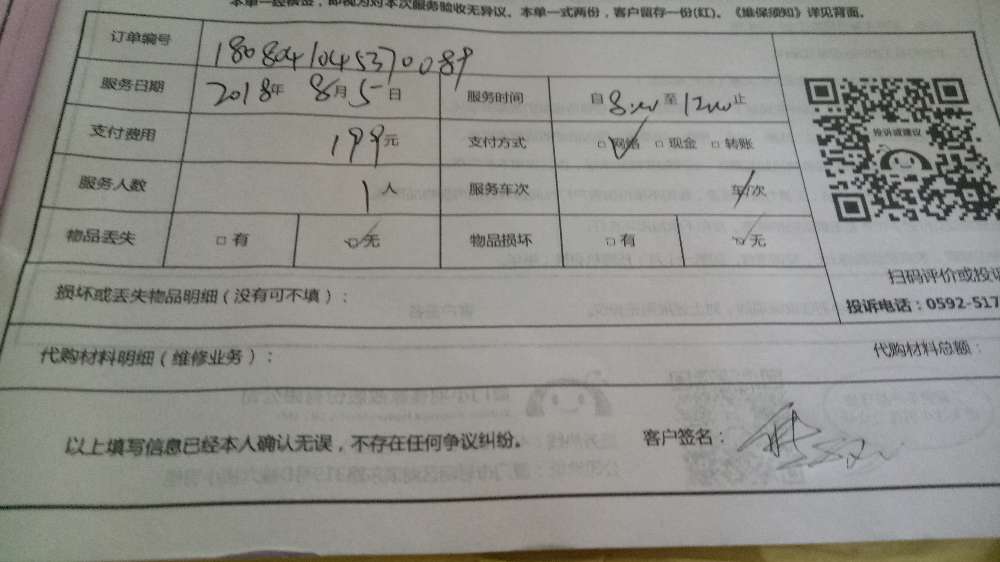 本单一经核签，即视为对本次服务验收无异议。本单一式两份，客户留存一份(红)。《维保须知》详见背面。
订单编号 1808041045370089
服务日期 2018年 8月5日 服务时间 自 8:00 至 12:00 止
支付费用 199元 支付方式 □网络 □现金 □转账
服务人数 1人 服务车次 车/次
物品丢失 □有 □无 物品损坏 □有 □无
投诉或建议
扫码评价或投诉
投诉电话：0592-517
损坏或丢失物品明细（没有可不填）：
代购材料明细（维修业务）： 代购材料总额：
以上填写信息已经本人确认无误，不存在任何争议纠纷。 客户签名：